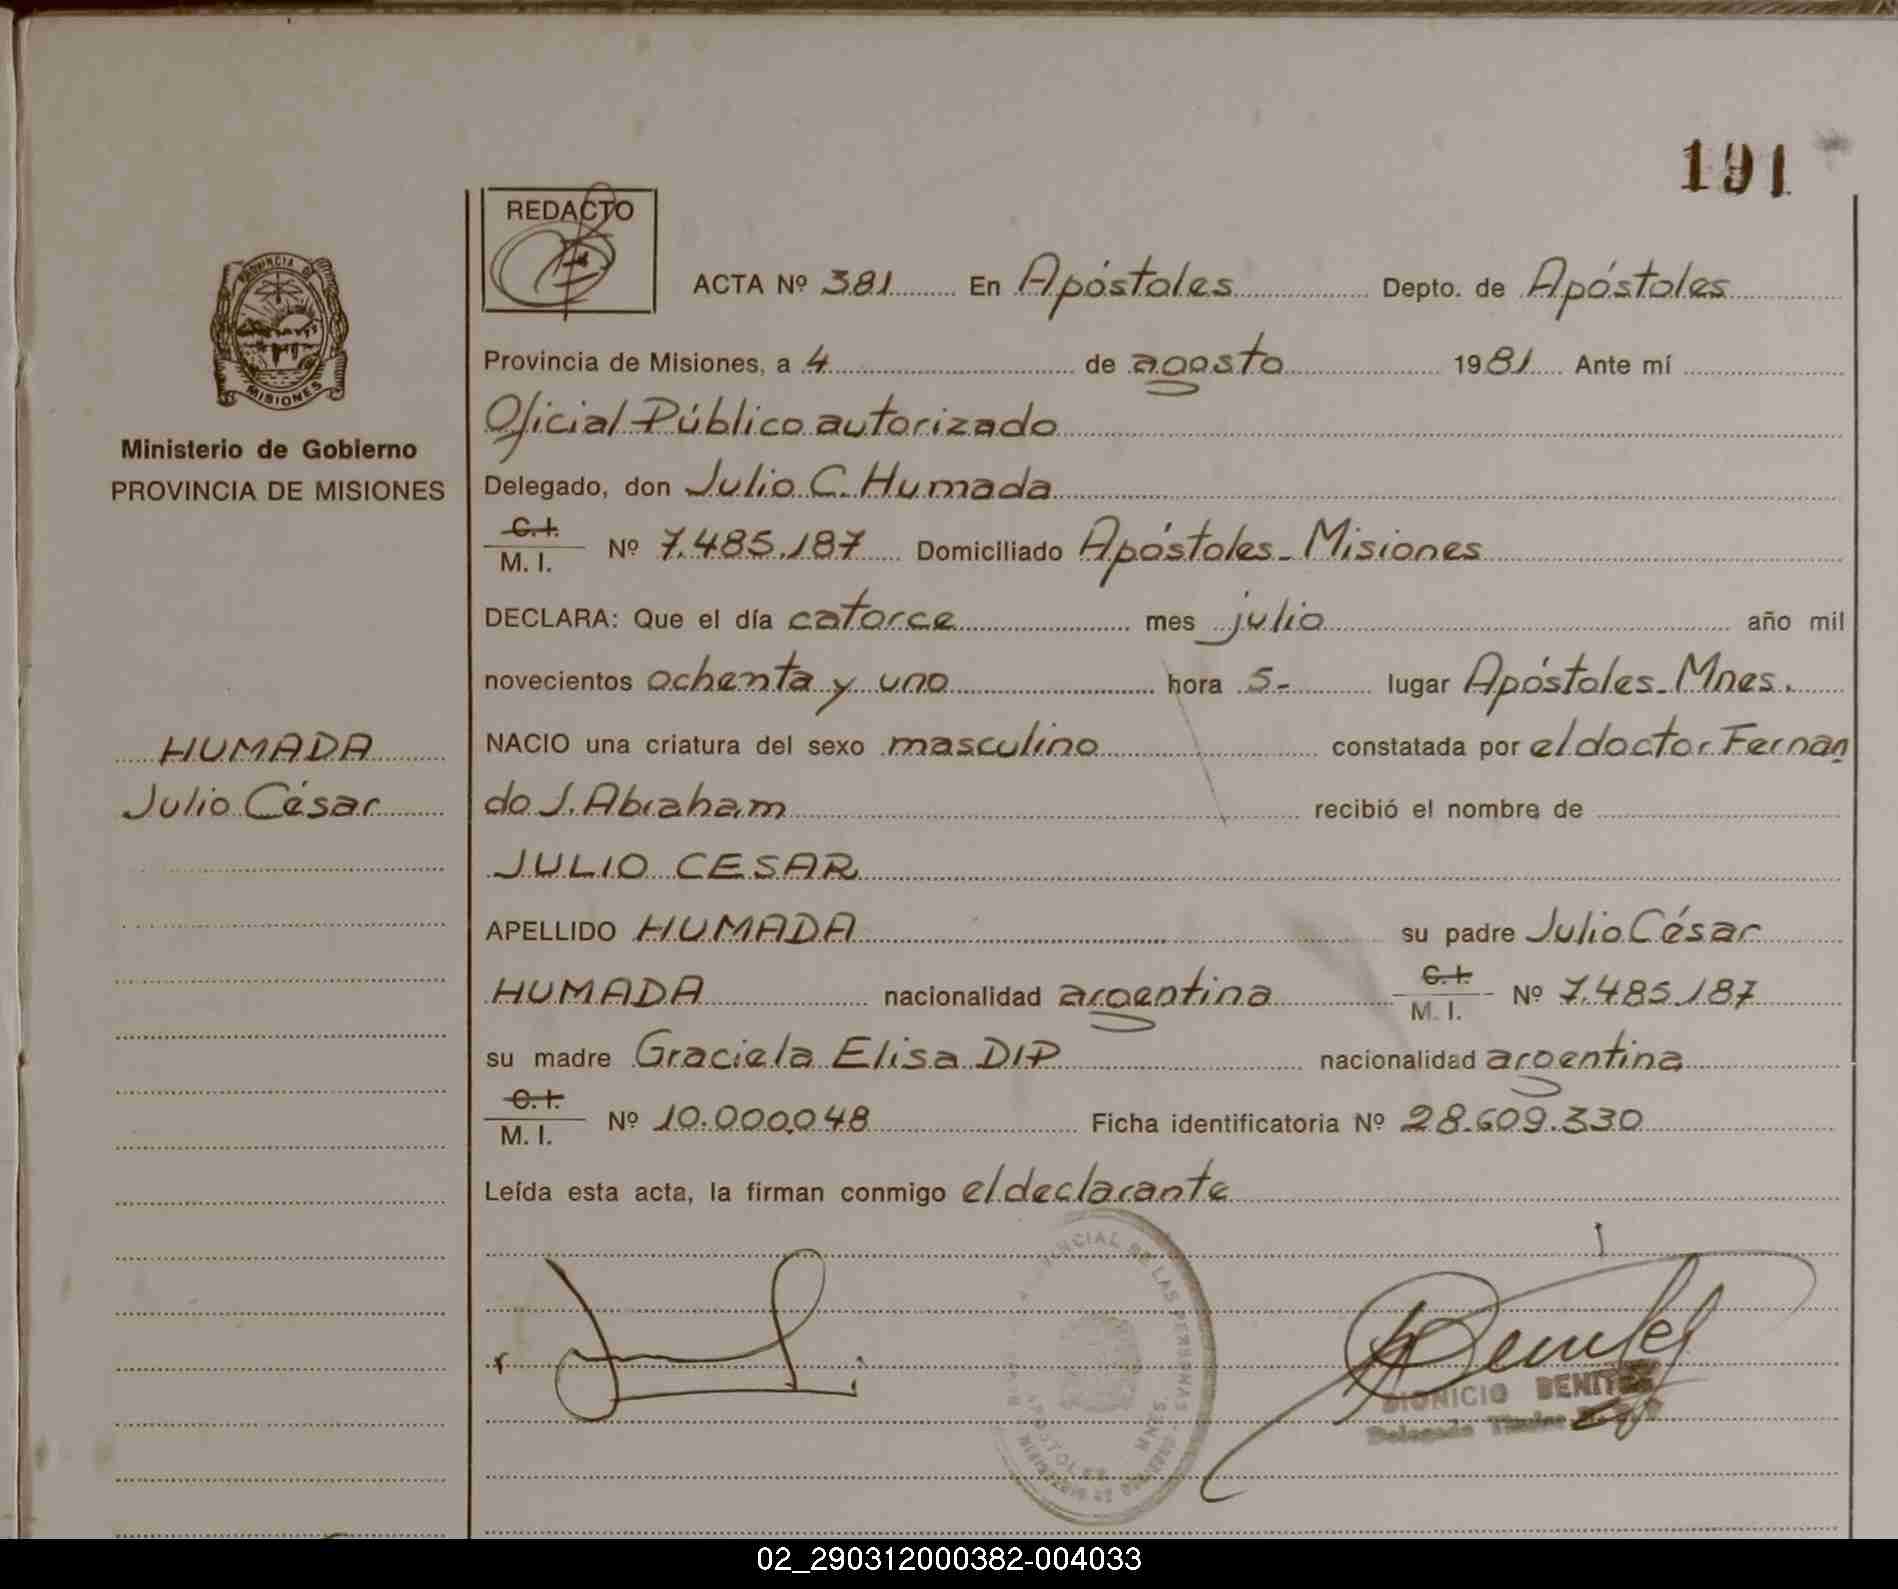 191
REDACTO
PROVINCIA D MISIONES
ACTA Nº 381 En Apóstoles Depto. de Apóstoles
Provincia de Misiones, a 4 de agosto 1981 Ante mí
Oficial Público autorizado
Ministerio de Gobierno
PROVINCIA DE MISIONES
Delegado, don Julio C. Humada
C.I. M. I. Nº 7.485.187 Domiciliado Apóstoles - Misiones
DECLARA: Que el día catorce mes julio año mil
novecientos ochenta y uno hora 5- lugar Apóstoles - Mnes.
HUMADA
Julio César
NACIO una criatura del sexo masculino constatada por el doctor Fernan
do J. Abraham recibió el nombre de
JULIO CESAR
APELLIDO HUMADA su padre Julio César
HUMADA nacionalidad argentina C.I. M. I. Nº 7.485.187
su madre Graciela Elisa DIP nacionalidad argentina
C.I. M. I. Nº 10.000.048 Ficha identificatoria Nº 28.609.330
Leída esta acta, la firman conmigo el declarante
INCIAL DE LAS PERSONAS
APOSTOLES MNES.
DIONICIO BENITEZ
Delegado Titular
02_290312000382-004033